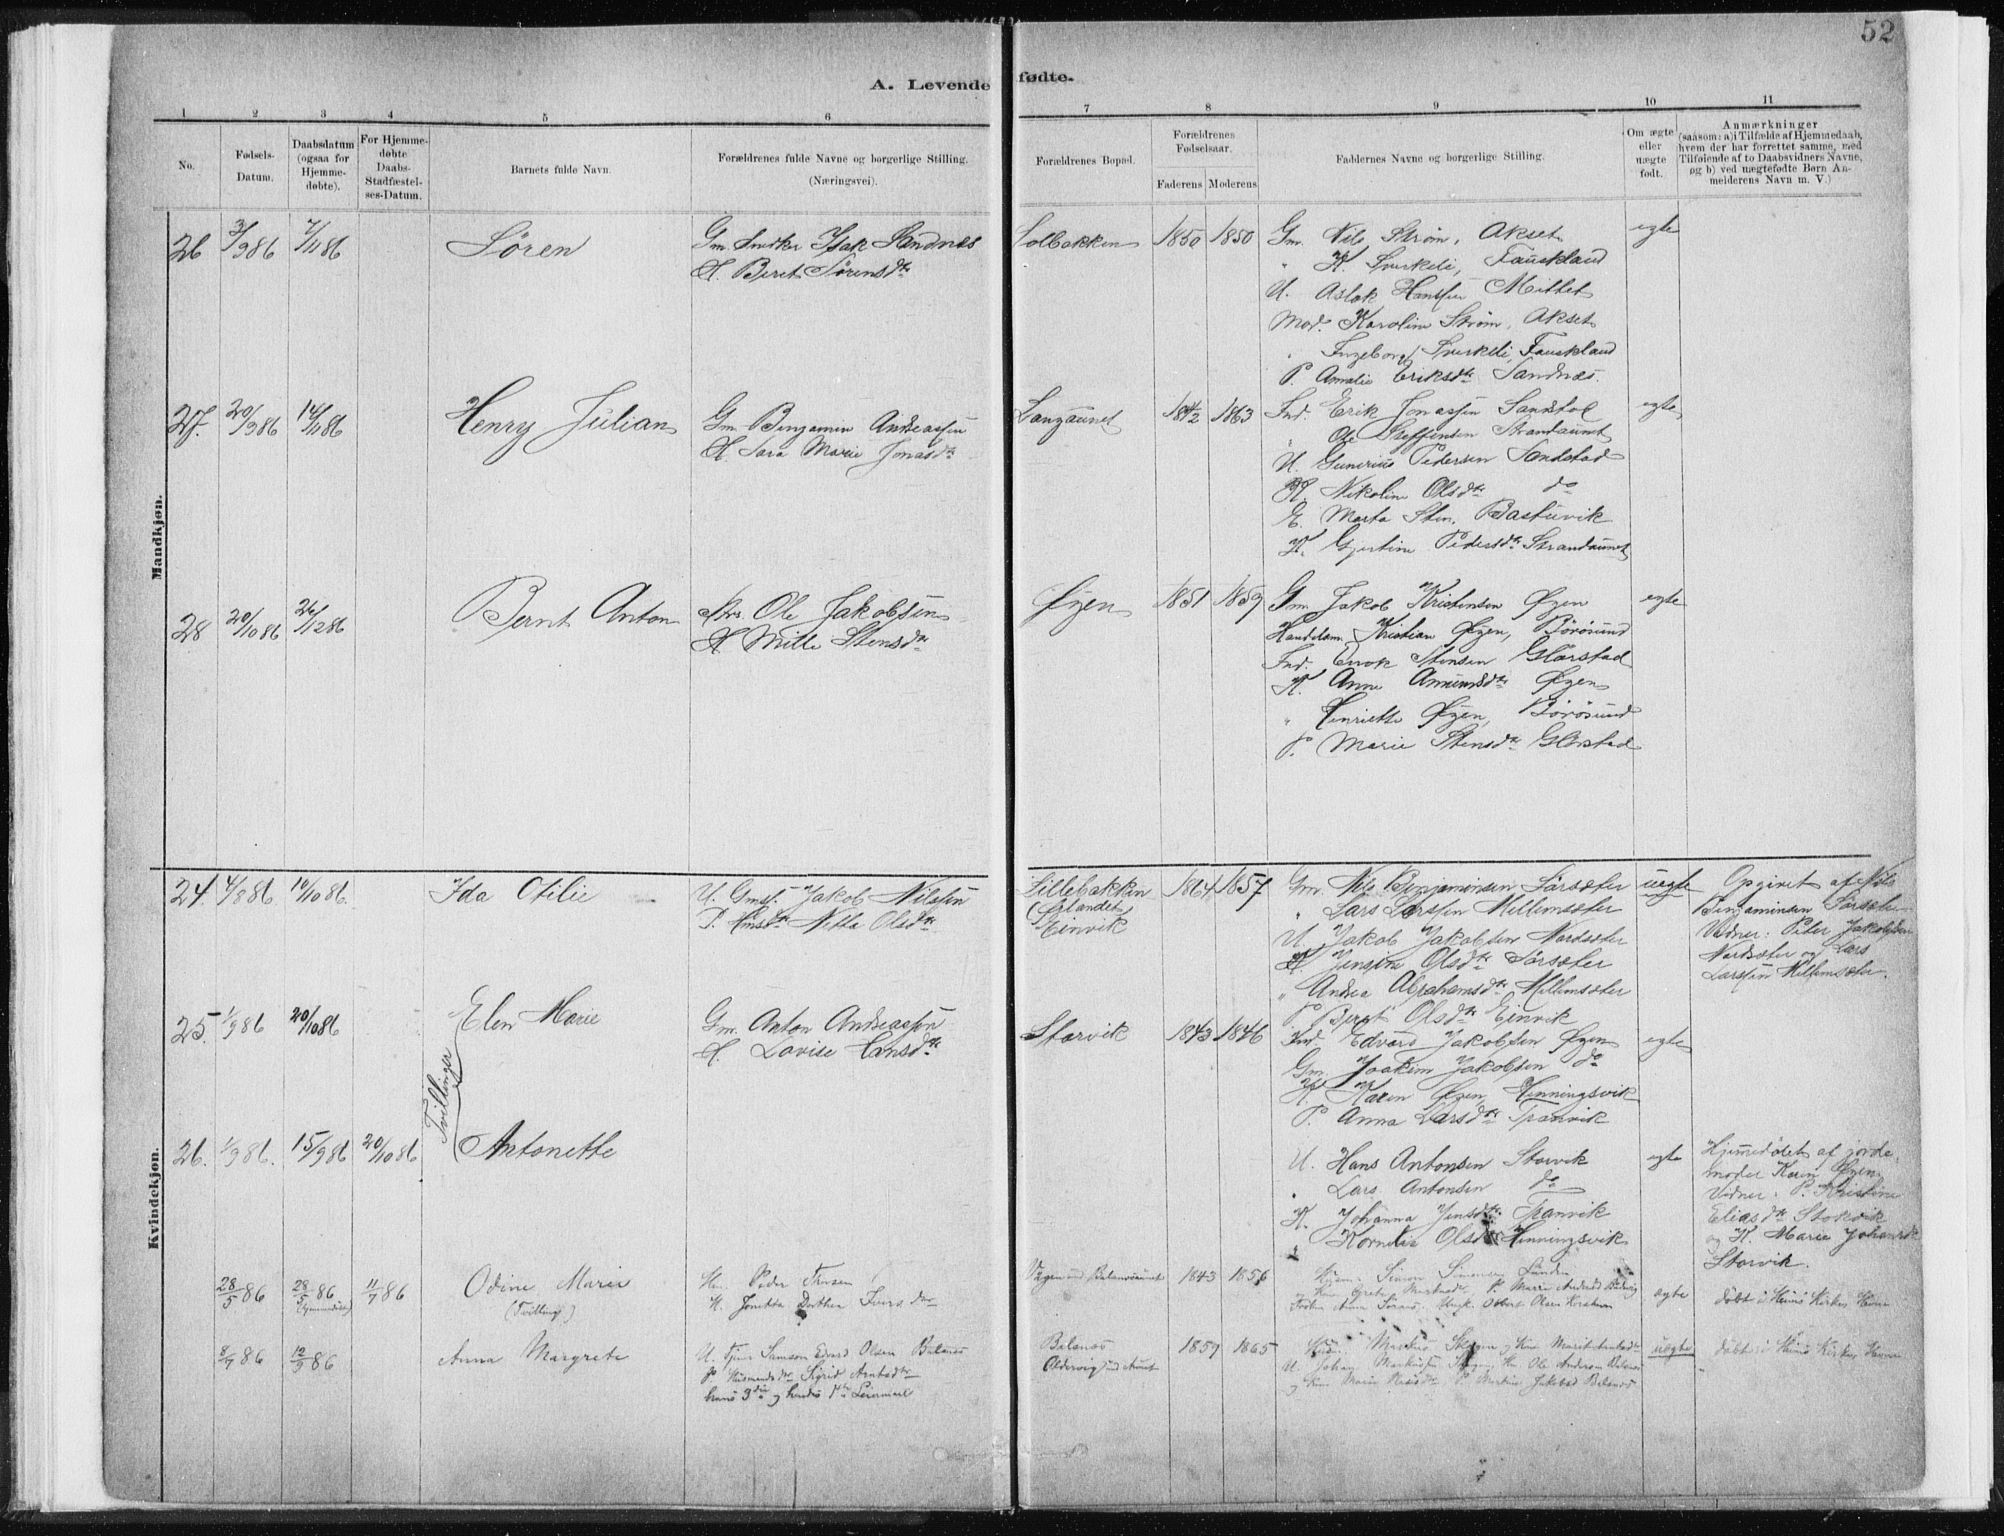 52
A. Levende fødte.
1 2 3 4 5 6 7 8 9 10 11
No.
Fødsels-
Datum.
Daabsdatum
(ogsaa for
Hjemme-
døbte).
For Hjemme-
døbte
Daabs-
Stadfæstel-
ses-Datum.
Barnets fulde Navn.
Forældrenes fulde Navne og borgerlige Stilling.
(Næringsvei).
Forældrenes Bopæl.
Forældrenes
Fødselsaar.
Faderens Moderens
Faddernes Navne og borgerlige Stilling.
Om ægte
eller
uægte
født.
Anmærkninger
(saasom: a) i Tilfælde af Hjemmedaab,
hvem der har forrettet samme, med
Tilføiende af to Daabsvidners Navne,
og b) ved uægtefødte Børn An-
melderens Navn m. V.)
Mandkjøn.
26 3/9 86 7/11 86 Søren
Gm. Isak Sandnes
H. Beret Sørensdtr
Solbakken 1850 1850
Gm. Nils Strøm, Akset
" K. Fauskland
U. Aslak Hansen Mittet
Mod. Karolina Strøm, Akset
" Ingeborg Fauskland
P. Amalie Eriksdtr Sandnes.
egte
27. 20/9 86 14/11 86 Henry Julian
Gm. Benjamin Andreassen
H. Sara Marie Jonasdtr
Langaunet 1842 1863
Ind. Erik Jonassen Sandstad
" Ole Steffensen Strandaunet
U. Gunerius Pedersen Sandstad
K. Nikoline Olsdtr do
E. Marta Sten. Bastuvik
K. Gjertine Pedersdtr Strandaunet
egte
28 20/10 86 26/12 86 Bernt Anton
Ole Jakobsen
H. Mille Stensdtr
Øyen 1851 1859
Gm. Jakob Kristensen Øyen
Handelsm. Kristian Øyen, Børøsund
Ind. Enok Stensen Glørstad
K. Anne Øyen
" Henriette Øyen, Børøsund
P. Marie Stensdtr Glørstad
egte
Kvindekjøn.
24. 4/8 86 10/10 86. Ida Otilie
U. Gmsf. Jakob Nilssen
P. Nikka Olsdtr
Lillebakken
(Ørlandet)
Einvik
1864 1857
Gm. Nils Benjaminsen Sørsæter
" Lars Larssen Mellemsæter
U. Jakob Jakobsen Nordsæter
K. Jensine Olsdtr Sørsæter
" Andrea Abrahamsdtr Mellemsæter
P. Beret Olsdtr Einvik
uegte
Opgivet af Nils
Benjaminsen Sørsæter
Vidner: Peter Jakobsen
Nordsæter og Lars
Larssen Mellemsæter.
25. 1/9 86 20/10 86 Elen Marie
Tvillinger
Gm. Anton Andreassen
H. Lovise Hansdtr
Storvik 1843 1846
Ind. Edvard Jakobsen Øyen
Gm. Joakim Jakobsen do
K. Karen Øyen, Henningsvik
P. Anna Larsdtr Tranvik
egte
26. 1/9 86. 15/9 86 20/10 86 Antonette
U. Hans Antonsen Storvik
" Lars Antonsen do
K. Johanna Jensdtr Tranvik
" Kornelia Olsdtr Henningsvik
egte
Hjemmedøbt af jorde-
moder Karen Øyen.
Vidner: P. Kristine
Eliasdtr Stokvik
og K. Marie Johansdtr
Storvik.
28/5 86 28/5 86 11/7 86 Odine Marie
(hjemmedøbt)
(Tvilling)
Peder Iversen
H. Jonetta Dorthea Iversdtr
1843 1856
Simon Simonsen
egte
døbt i Hevne Kirke, Hevne
8/7 86 12/9 86 Anna Margrete
U. Samson Edvard Olsen Balsnes
P. Husmandsdtr Sigrid Arntsdtr
hans 3die og hendes 1ste Leiermaal
Balsnes
1859 1865
uegte
døbt i Hevne Kirke, Hevne